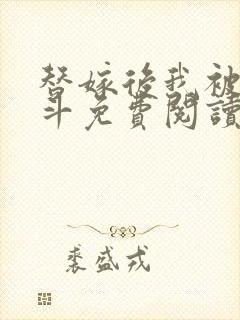 替嫁後我被
斗免費閱讀
裘盛戎